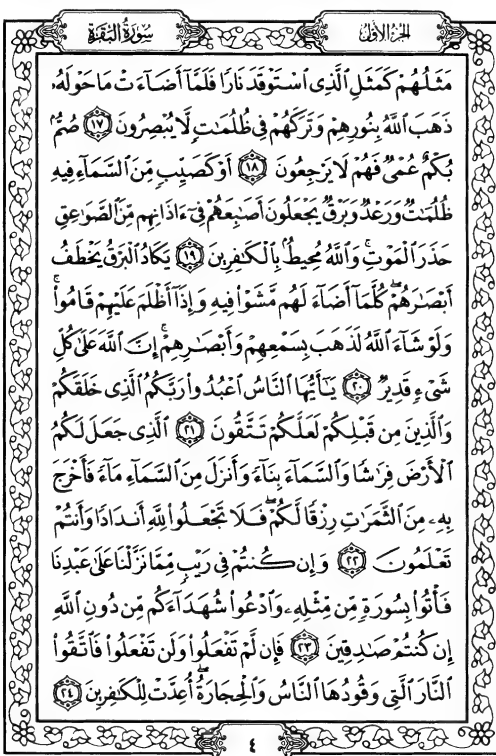 سُورَةُ البَقَرَةِ الجُزءُ الأَوَّلُ
مَثَلُهُمْ كَمَثَلِ ٱلَّذِى ٱسْتَوْقَدَ نَارًا فَلَمَّآ أَضَآءَتْ مَا حَوْلَهُۥ
ذَهَبَ ٱللَّهُ بِنُورِهِمْ وَتَرَكَهُمْ فِى ظُلُمَٰتٍ لَّا يُبْصِرُونَ ١٧ صُمٌّۢ
بُكْمٌ عُمْىٌ فَهُمْ لَا يَرْجِعُونَ ١٨ أَوْ كَصَيِّبٍ مِّنَ ٱلسَّمَآءِ فِيهِ
ظُلُمَٰتٌ وَرَعْدٌ وَبَرْقٌ يَجْعَلُونَ أَصَٰبِعَهُمْ فِىٓ ءَاذَانِهِم مِّنَ ٱلصَّوَٰعِقِ
حَذَرَ ٱلْمَوْتِ ۚ وَٱللَّهُ مُحِيطٌۢ بِٱلْكَٰفِرِينَ ١٩ يَكَادُ ٱلْبَرْقُ يَخْطَفُ
أَبْصَٰرَهُمْ ۖ كُلَّمَآ أَضَآءَ لَهُم مَّشَوْا۟ فِيهِ وَإِذَآ أَظْلَمَ عَلَيْهِمْ قَامُوا۟ ۚ
وَلَوْ شَآءَ ٱللَّهُ لَذَهَبَ بِسَمْعِهِمْ وَأَبْصَٰرِهِمْ ۚ إِنَّ ٱللَّهَ عَلَىٰ كُلِّ
شَىْءٍ قَدِيرٌ ٢٠ يَٰٓأَيُّهَا ٱلنَّاسُ ٱعْبُدُوا۟ رَبَّكُمُ ٱلَّذِى خَلَقَكُمْ
وَٱلَّذِينَ مِن قَبْلِكُمْ لَعَلَّكُمْ تَتَّقُونَ ٢١ ٱلَّذِى جَعَلَ لَكُمُ
ٱلْأَرْضَ فِرَٰشًا وَٱلسَّمَآءَ بِنَآءً وَأَنزَلَ مِنَ ٱلسَّمَآءِ مَآءً فَأَخْرَجَ
بِهِۦ مِنَ ٱلثَّمَرَٰتِ رِزْقًا لَّكُمْ ۖ فَلَا تَجْعَلُوا۟ لِلَّهِ أَندَادًا وَأَنتُمْ
تَعْلَمُونَ ٢٢ وَإِن كُنتُمْ فِى رَيْبٍ مِّمَّا نَزَّلْنَا عَلَىٰ عَبْدِنَا
فَأْتُوا۟ بِسُورَةٍ مِّن مِّثْلِهِۦ وَٱدْعُوا۟ شُهَدَآءَكُم مِّن دُونِ ٱللَّهِ
إِن كُنتُمْ صَٰدِقِينَ ٢٣ فَإِن لَّمْ تَفْعَلُوا۟ وَلَن تَفْعَلُوا۟ فَٱتَّقُوا۟
ٱلنَّارَ ٱلَّتِى وَقُودُهَا ٱلنَّاسُ وَٱلْحِجَارَةُ ۖ أُعِدَّتْ لِلْكَٰفِرِينَ ٢٤
٤